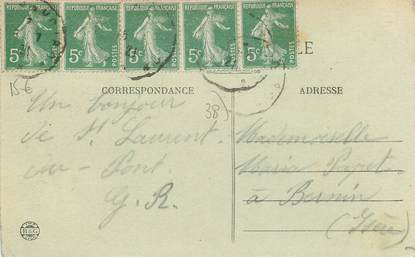 REPUBLIQUE FRANÇAISE REPUBLIQUE FRANÇAISE REPUBLIQUE FRANÇAISE REPUBLIQUE FRANÇAISE REPUBLIQUE FRANÇAISE
5c POSTES 5c POSTES 5c POSTES 5c POSTES 5c POSTES
LE
15€
CORRESPONDANCE
ADRESSE
38)
Un bonjour
de St Laurent
du - Pont
G. R.
Mademoiselle
Maria
à Bernin
(Isère)
B&G